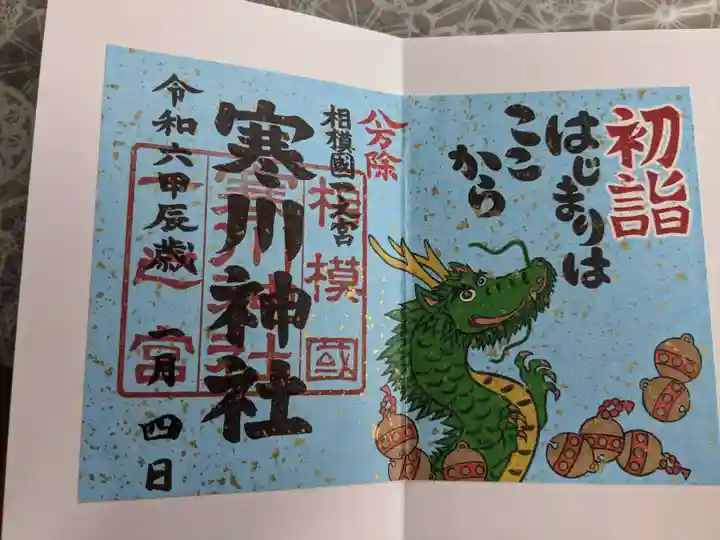 初詣
はじまりは
ここ
から
八方除
相模國一之宮
寒川神社
令和六甲辰歳
二月四日
相模國
寒川神社
一之宮